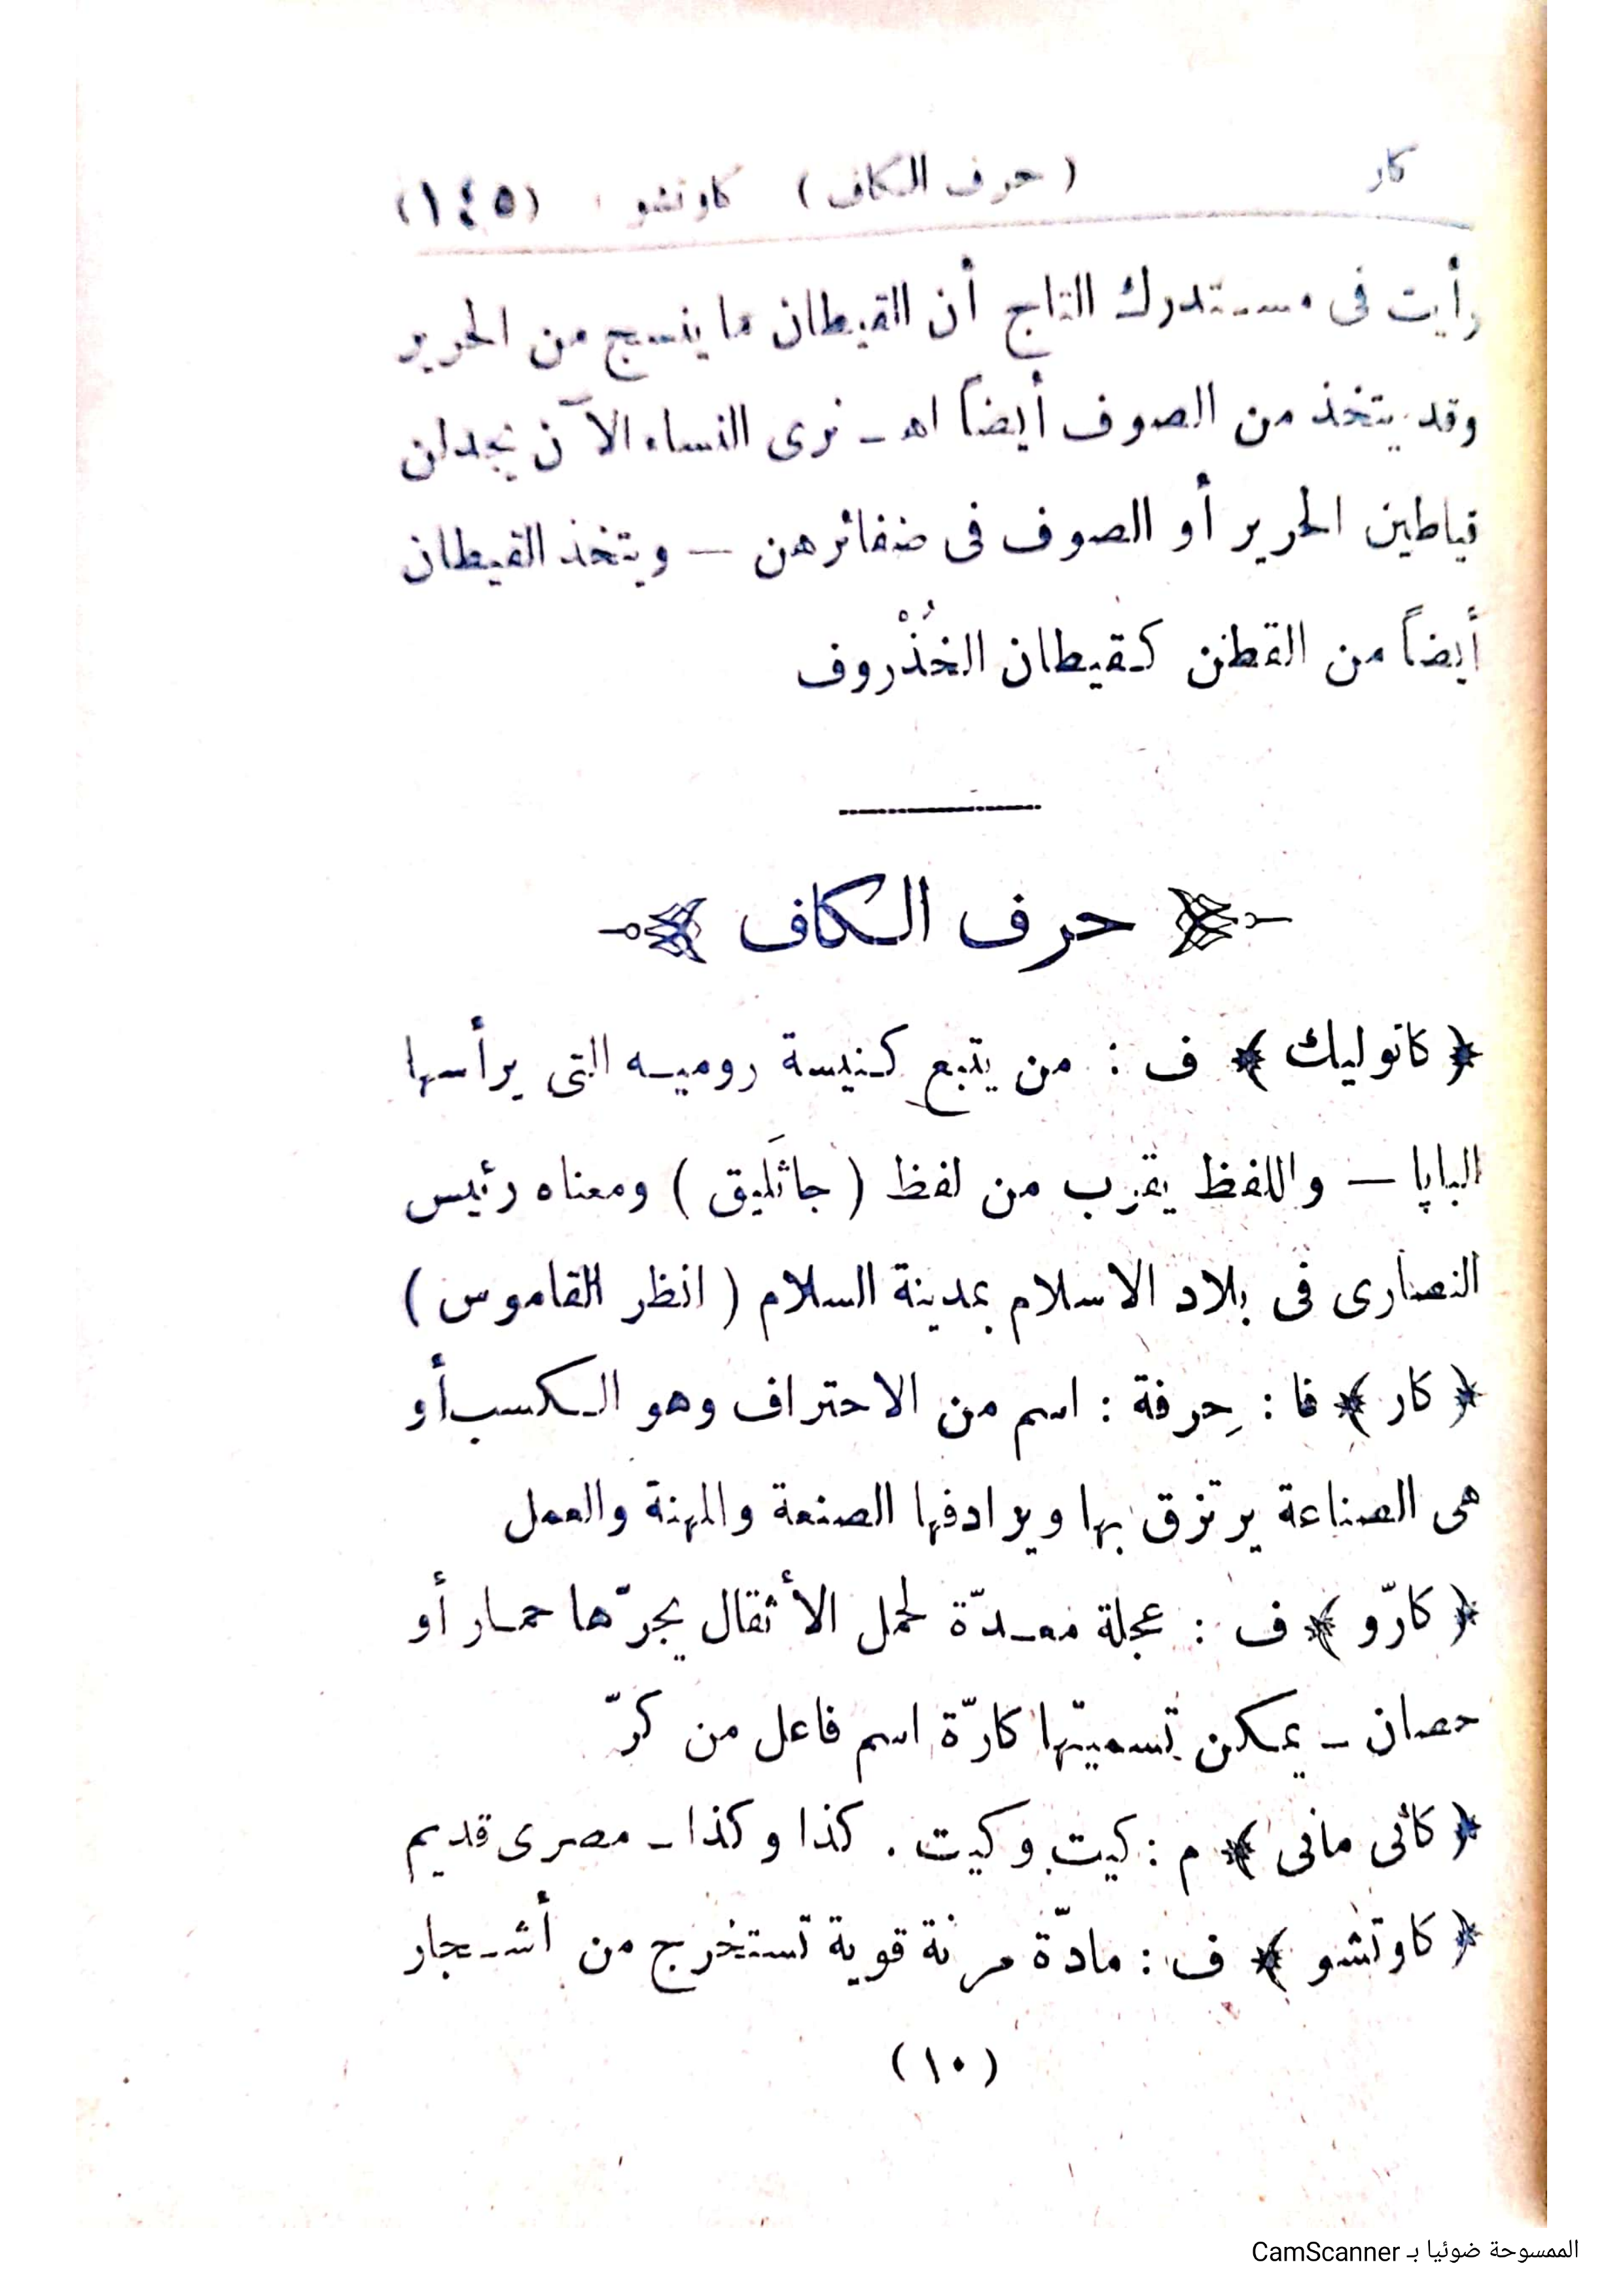 كار ( حرف الكاف ) كاوتشو (١٤٥)
رأيت فى مستدرك التاج أن القيطان ما ينسج من الحرير
وقد يتخذ من الصوف أيضاً اهـ ـ نرى النساء الآن يجدلن
قياطين الحرير أو الصوف فى ضفائرهن — ويتخذ القيطان
أيضاً من القطن كقيطان الخُذْروف
حرف الكاف
﴿ كاتوليك ﴾ ف : من يتبع كنيسة روميه التى يرأسها
البابا — واللفظ يقرب من لفظ ( جاثَليق ) ومعناه رئيس
النصارى فى بلاد الاسلام بمدينة السلام ( انظر القاموس )
﴿ كار ﴾ فا : حِرفة : اسم من الاحتراف وهو الكسب أو
هى الصناعة يرتزق بها ويرادفها الصنعة والمهنة والعمل
﴿ كارّو ﴾ ف : عجلة معدّة لحمل الأثقال يجرّها حمار أو
حصان ـ يمكن تسميتها كارّة اسم فاعل من كرّ
﴿ كانى مانى ﴾ م : كيت وكيت . كذا وكذا ـ مصرى قديم
﴿ كاوتشو ﴾ ف : مادّة مرنة قوية تستخرج من أشجار
(١٠)
الممسوحة ضوئيا بـ CamScanner